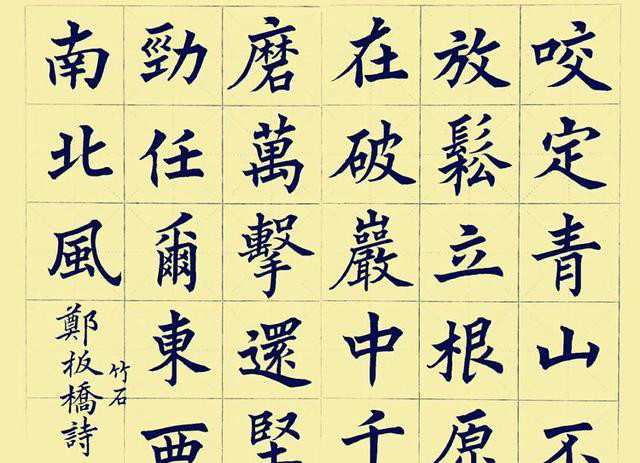 咬定青山不
放鬆立根原
在破巖中千
磨萬擊還堅
勁任爾東西
南北風
竹石
鄭板橋詩